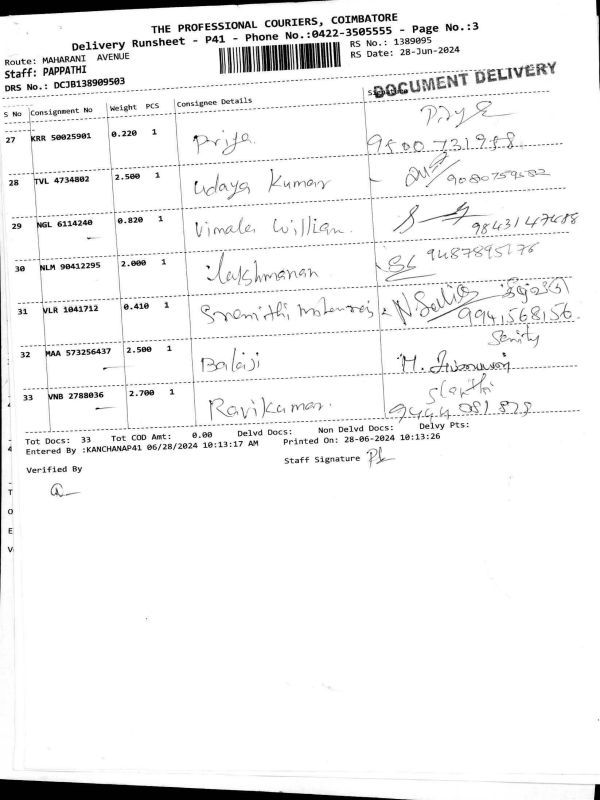 THE PROFESSIONAL COURIERS, COIMBATORE
Delivery Runsheet - P41 - Phone No.:0422-3505555 - Page No.:3
Route: MAHARANI AVENUE
RS No.: 1389095
Staff: PAPPATHI
RS Date: 28-Jun-2024
DRS No.: DCJB138909503
DOCUMENT DELIVERY
S No Consignment No Weight PCS Consignee Details
27 KRR 50025901 0.220 1 Priya
28 TVL 4734802 2.500 1 Udaya Kumar 9080759582
29 NGL 6114240 0.820 1 Vimala William 9843147488
30 NLM 90412295 2.000 1 Lakshmanan 9487895176
31 VLR 1041712 0.410 1 9941568156
32 MAA 573256437 2.500 1 Balaji
33 VNB 2788036 2.700 1 Ravikumar. 9444081878
Tot Docs: 33 Tot COD Amt: 0.00 Delvd Docs: Non Delvd Docs: Delvy Pts:
Entered By :KANCHANAP41 06/28/2024 10:13:17 AM Printed On: 28-06-2024 10:13:26
Staff Signature
Verified By